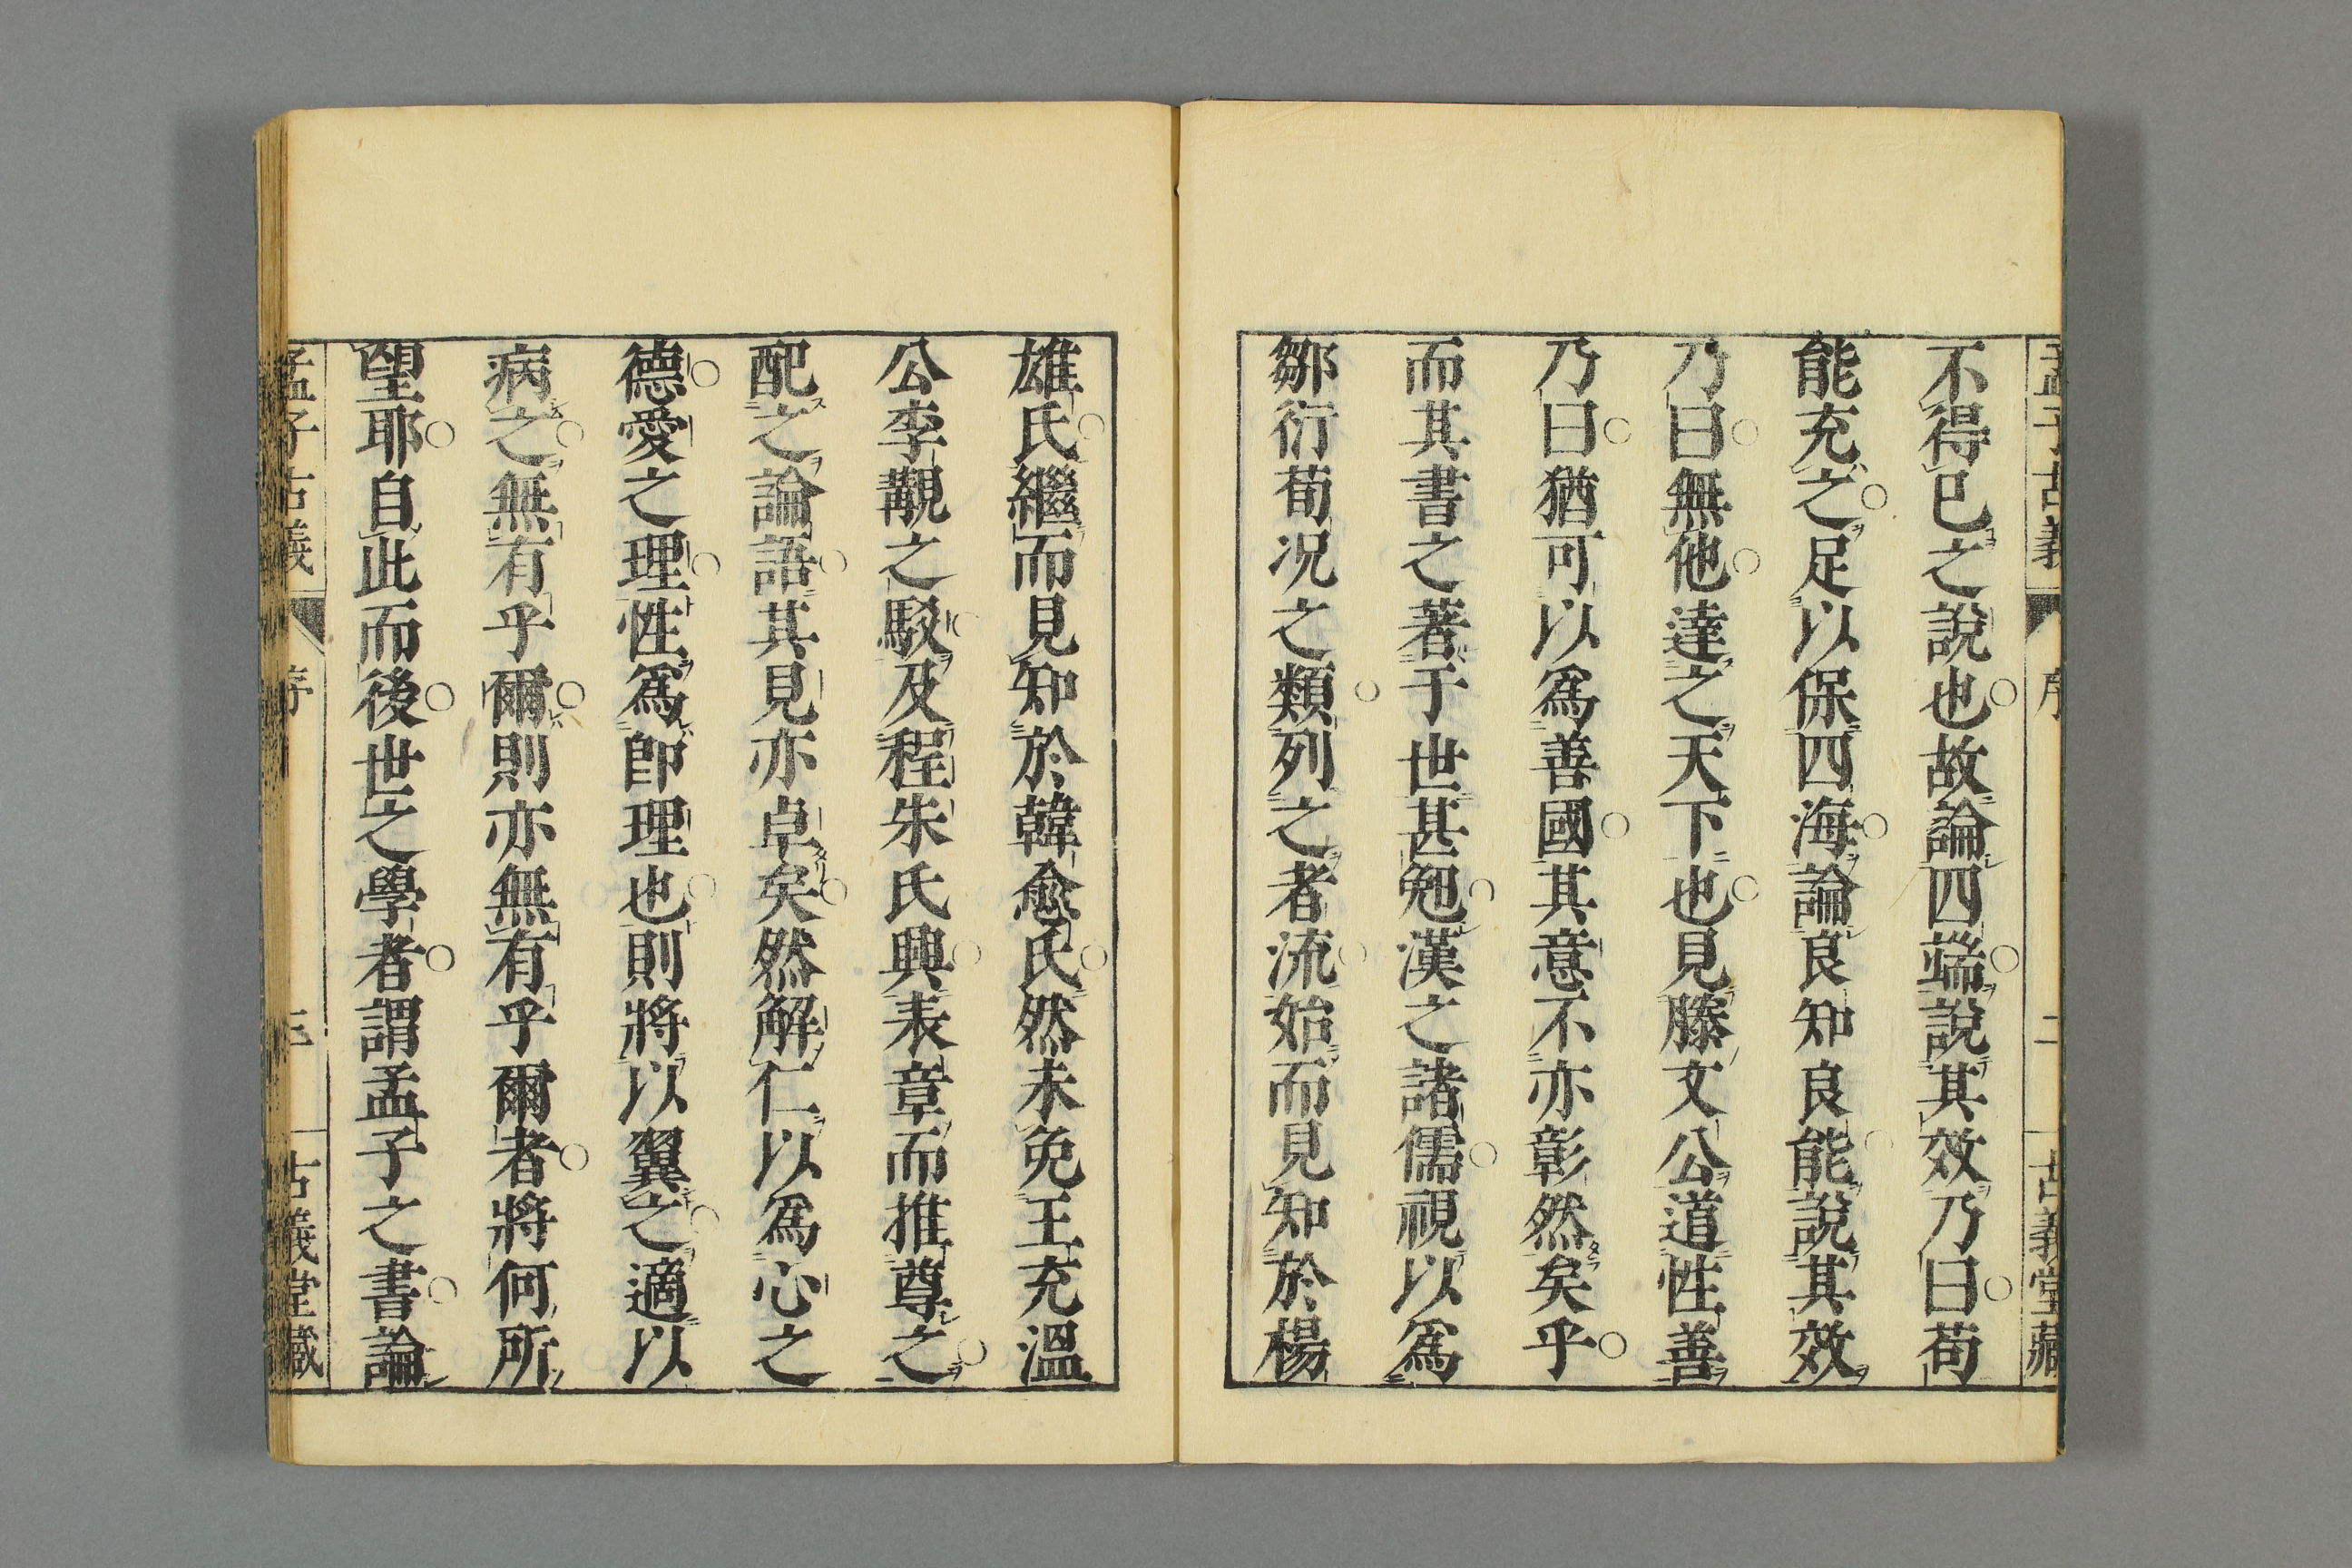 孟子古義 序 二 古義堂藏
不得已之說也故論四端說其效乃曰苟
能充之足以保四海論良知良能說其效
乃曰無他達之天下也見滕文公道性善
乃曰猶可以爲善國其意不亦彰然矣乎
而其書之著于世甚勉漢之諸儒視以爲
鄒衍荀况之類列之者流始而見知於楊
雄氏繼而見知於韓愈氏然未免王充溫
公李覯之駁及程朱氏興表章而推尊之
配之論語其見亦卓矣然解仁以爲心之
德愛之理性爲卽理也則將以翼之適以
病之無有乎爾則亦無有乎爾者將何所
望耶自此而後世之學者謂孟子之書論
孟子古義 序 古義堂藏